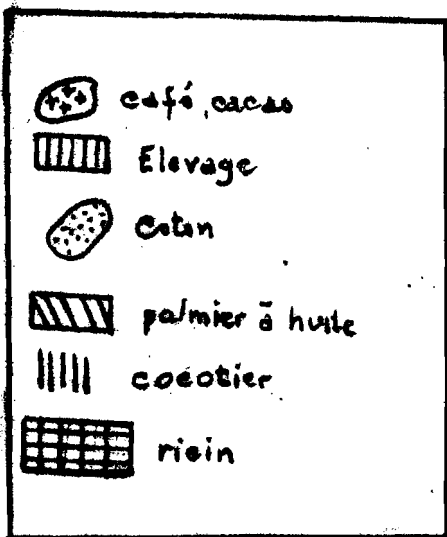 café, cacao
Elevage
Coton
palmier à huile
cocotier
ricin